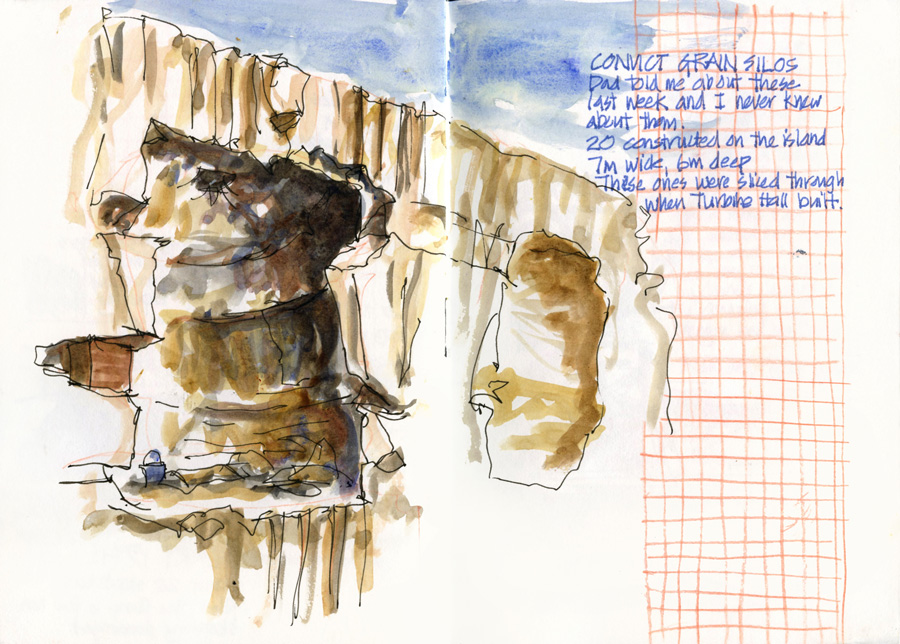 CONVICT GRAIN SILOS
Dad told me about these
last week and I never knew
about them.
20 constructed on the island
7m wide, 6m deep
These ones were sliced through
when Turbine Hall built.